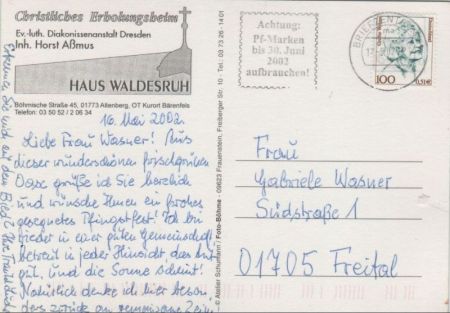 Christliches Erholungsheim
Ev.-luth. Diakonissenanstalt Dresden
Inh. Horst Aßmus
HAUS WALDESRUH
Böhmische Straße 45, 01773 Altenberg, OT Kurort Bärenfels
Telefon: 03 50 52 / 2 06 34
16. Mai 2002
Liebe Frau Wasner! Aus
dieser wunderschönen frischgrünen
Oase grüße ich Sie herzlich
und wünsche Ihnen ein frohes
gesegnetes Pfingstfest! Ich bin
wieder in einer guten Gemeinschaft,
betreut in jeder Hinsicht, das tut
gut, und die Sonne scheint!
Natürlich denke ich hier beson-
ders zurück an gemeinsame
Erkennen Sie mich auf dem Bild?
© Atelier Schurmann / Foto-Böhme · 09623 Frauenstein, Freiberger Str. 10 · Tel. 03 73 26 - 14 01
Achtung:
Pf-Marken
bis 30. Juni
2002
aufbrauchen!
BRIEFZEN
100
0,51€
Deutschland
Frau
Gabriele Wasner
Südstraße 1
01705 Freital